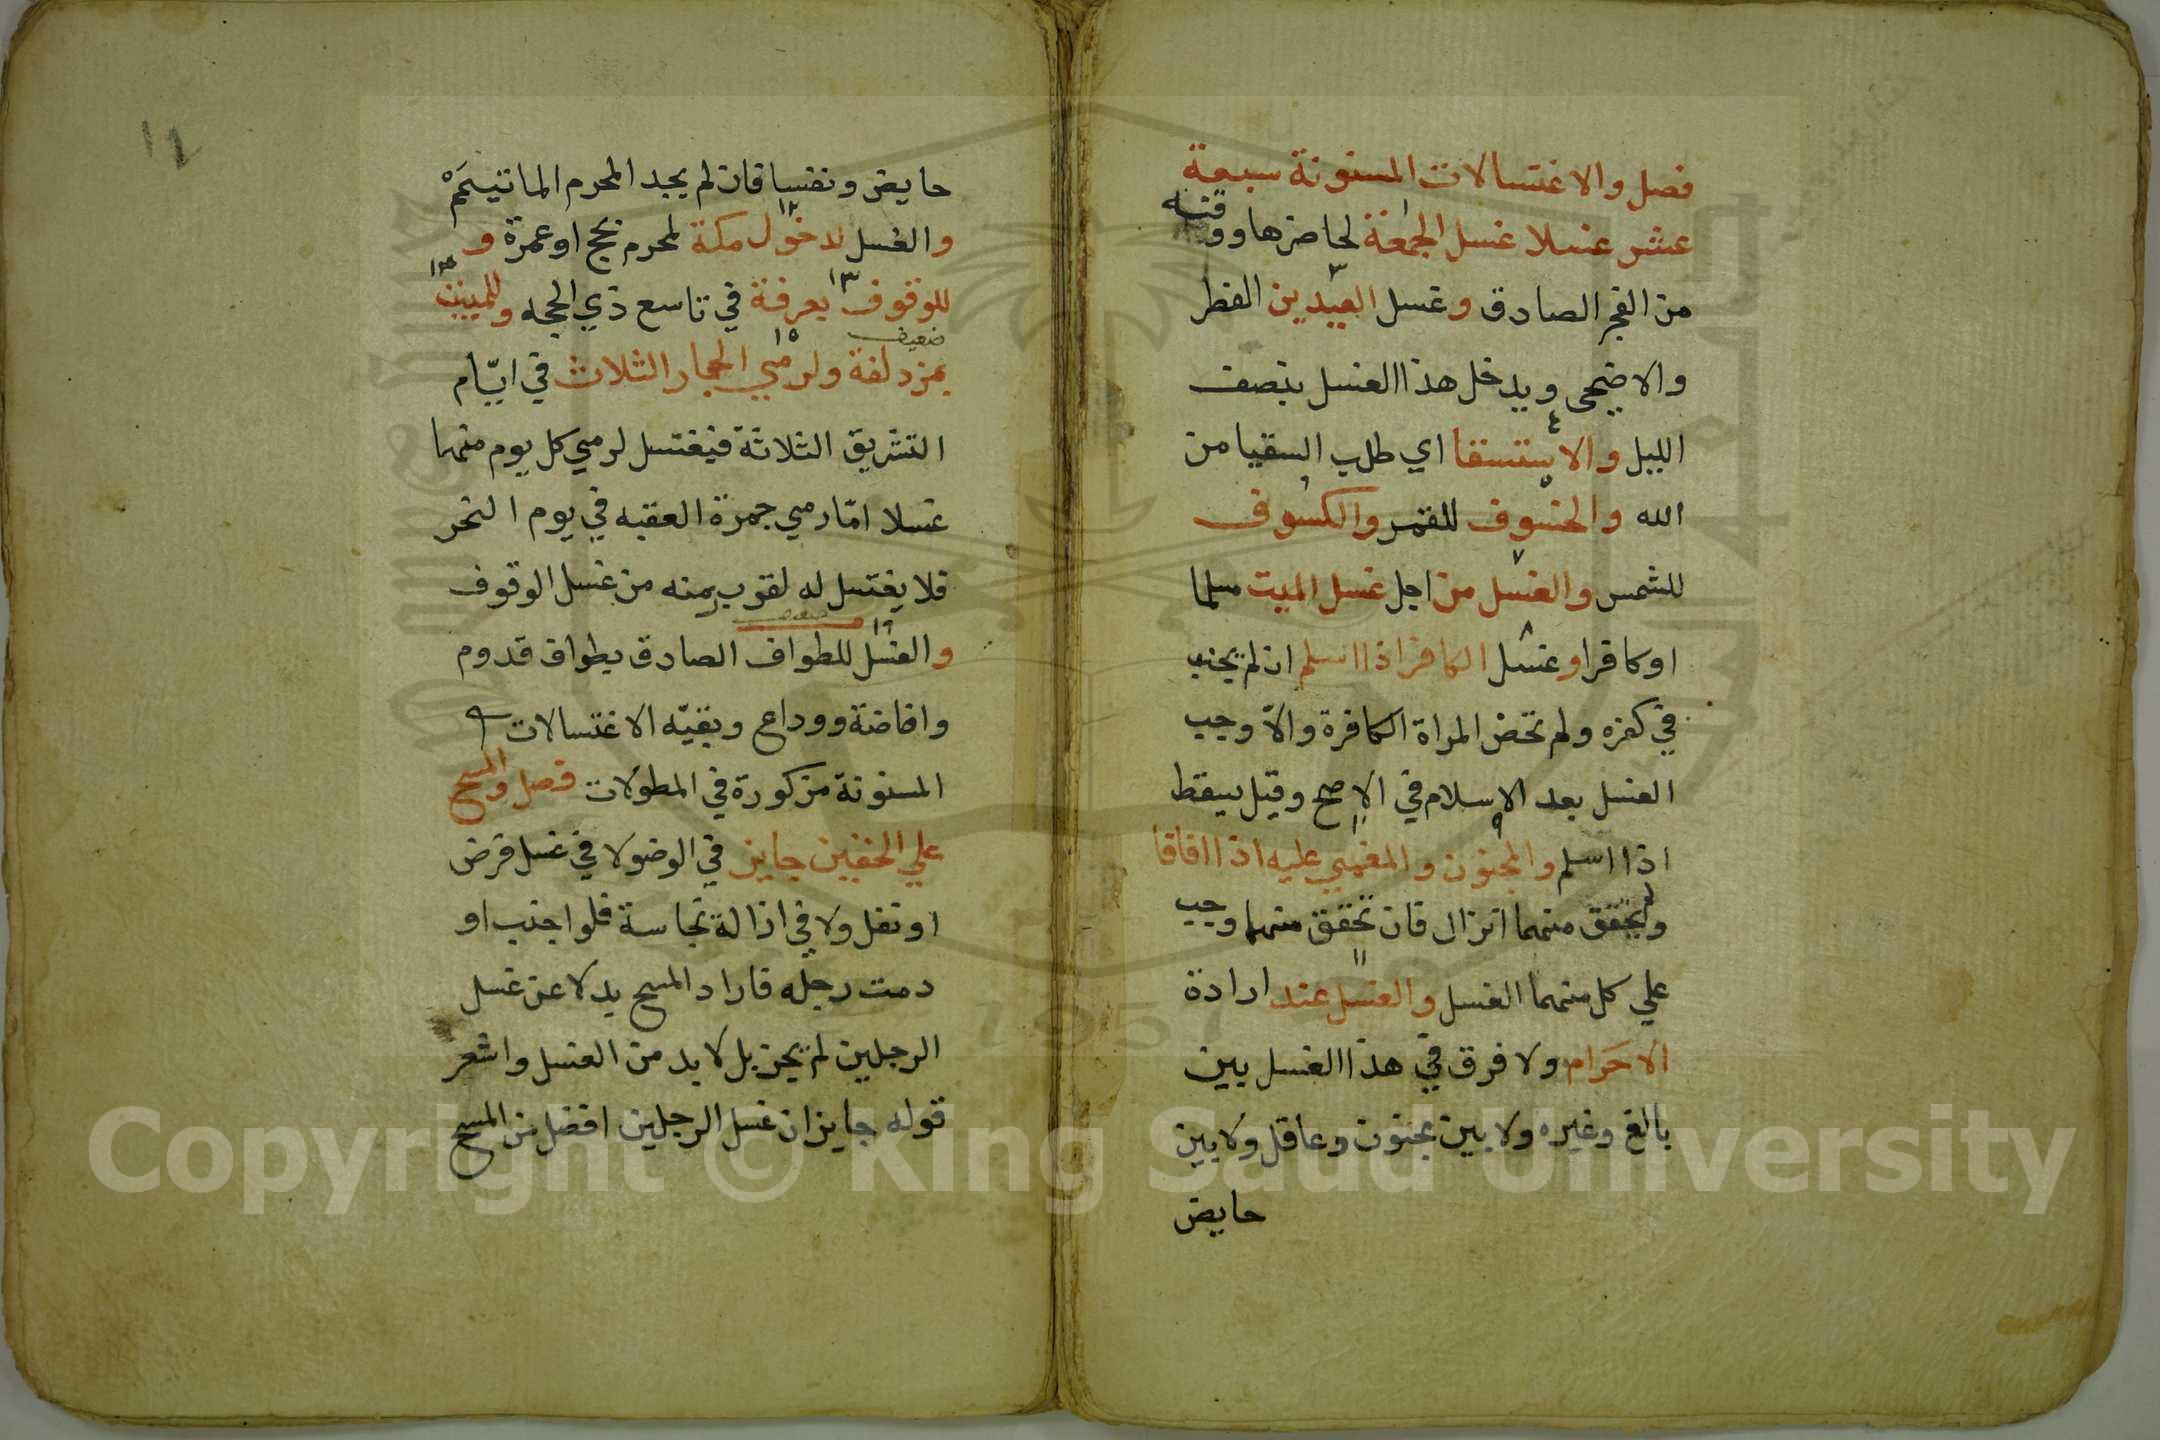 فصل والاغتسالات المسنونة سبعة
عشر غسلا غسل الجمعة لحاضرها ووقته
من الفجر الصادق وغسل العيدين الفطر
والاضحى ويدخل هذا الغسل بنصف
الليل والاستسقا اي طلب السقيا من
الله والخسوف للقمر والكسوف
للشمس والغسل من اجل غسل الميت مسلما
او كافرا وغسل الكافر اذا اسلم ان لم يجنب
في كفره ولم تحض المراة الكافرة والاّ وجب
الغسل بعد الاسلام في الاصح وقيل يسقط
اذا اسلم والمجنون والمغمي عليه اذا افاقا
ولم يتحقق منهما انزال فان تحقق منهما وجب
علي كل منهما الغسل والغسل عند ارادة
الاحرام ولا فرق في هذا الغسل بين
بالغ وغيره ولا بين مجنون وعاقل ولا بين
حايض
١٢
حايض ونفسا فان لم يجد المحرم الما تيمم
والغسل لدخول مكة لمحرم بحج او عمرة و
للوقوف بعرفة في تاسع ذي الحجه وللمبيت
ضعيف
بمزدلفة ولرمي الجمار الثلاث في ايّام
التشريق الثلاثة فيغتسل لرمي كل يوم منهما
غسلا امّا رمي جمرة العقبه في يوم النحر
فلا يغتسل له لقرب منه من غسل الوقوف
ضعيف
والغسل للطواف الصادق بطواف قدوم
وافاضة ووداع وبقيّه الاغتسالات
المسنونة مذكورة في المطولات فصل والمسح
علي الخفين جايز في الوضو لا في غسل فرض
او نفل ولا في ازالة نجاسة فلو اجنب او
دمت رجله فاراد المسح بدلا عن غسل
الرجلين لم يجز بل لا بد من الغسل واشعر
قوله جايز ان غسل الرجلين افضل من المسح
Copyright © King Saud University
1957